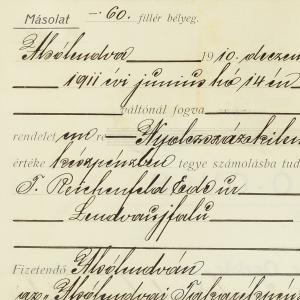 Másolat
-. 60. fillér bélyeg.
Alsólendva 1910. decem
1911 évi junius hó 14 én
váltónál fogva
rendelet em re Nyolczszázkilen
értéke készpénzben tegye számolásba tud
T. Reichenfeld Ede úr
Lendvaujfalu
Fizetendő Alsólendván
az „Alsólendvai Takarékpén